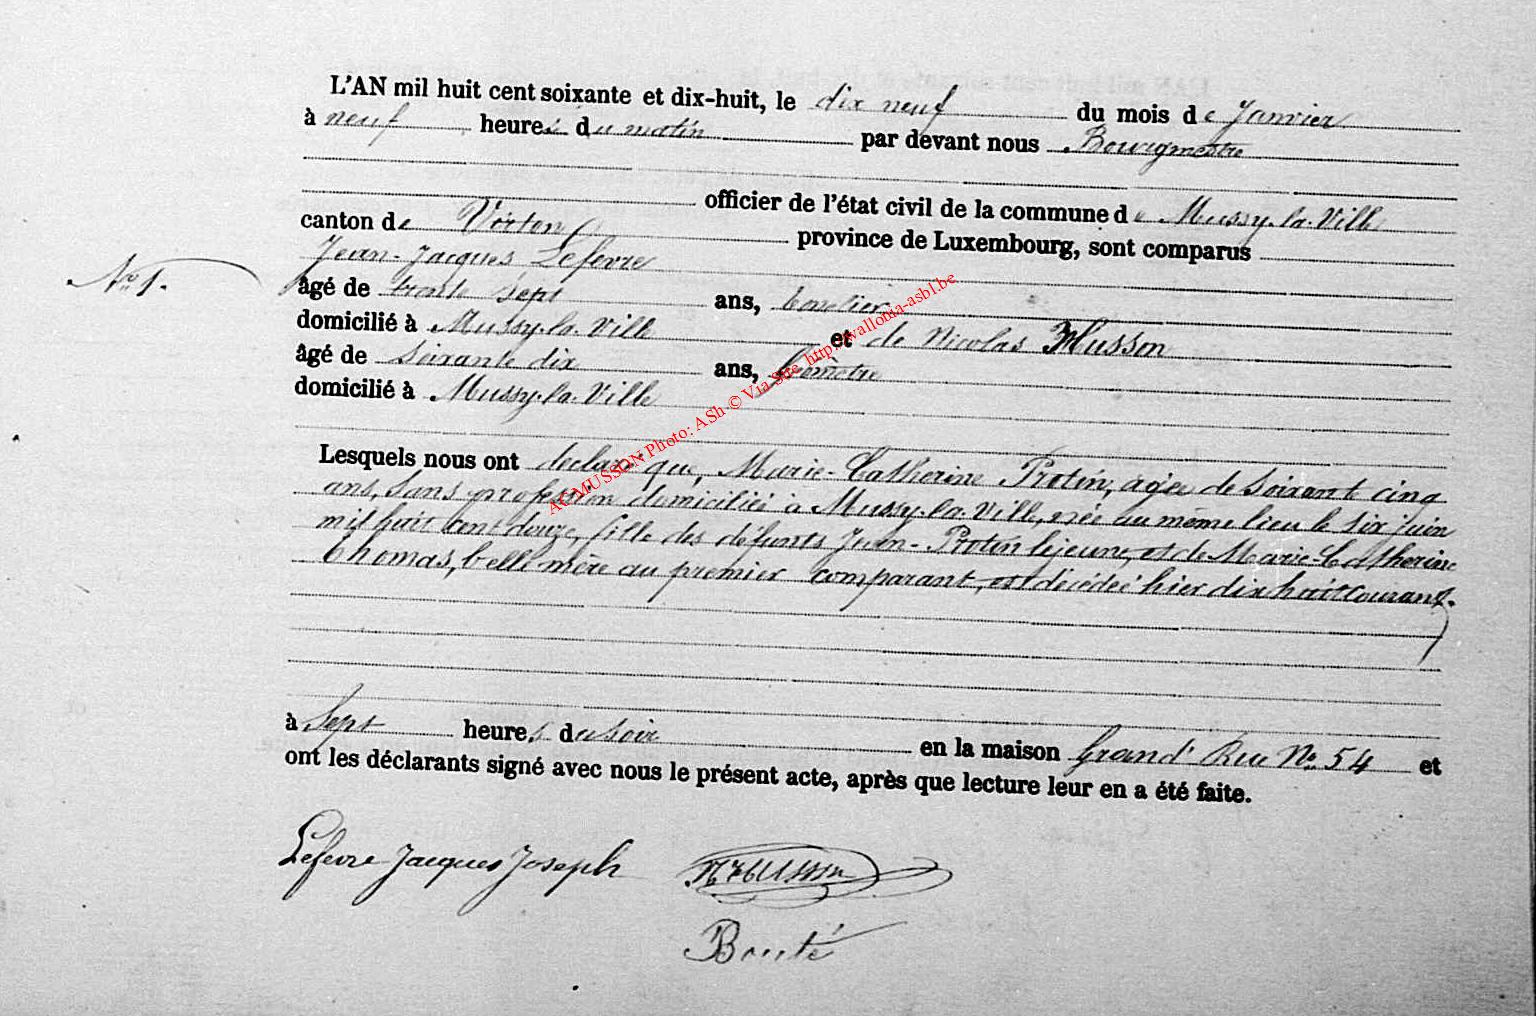 L'AN mil huit cent soixante et dix-huit, le dix neuf du mois de Janvier
à neuf heures du matin par devant nous Bourgmestre
officier de l'état civil de la commune de Mussy-la-Ville
canton de Virton province de Luxembourg, sont comparus
Jean-Jacques Lefevre
N° 1.
âgé de trente sept ans, tonnelier
domicilié à Mussy-la-Ville et de Nicolas Husson
âgé de soixante dix ans, Géomètre
domicilié à Mussy-la-Ville
Lesquels nous ont déclaré que, Marie-Catherine Protin, agée de soixante cinq
ans, sans profession domiciliée à Mussy-la-Ville, née au même lieu le six juin
mil huit cent douze, fille des défunts Jean-Protin lejeune, et de Marie-Catherine
Thomas, belle mère au premier comparant, est décédée hier dix huit courant.
à sept heures du soir en la maison Grand' Rue N° 54 et
ont les déclarants signé avec nous le présent acte, après que lecture leur en a été faite.
Lefevre Jacques Joseph NHusson
Bouté
AC MUSSON Photo: ASh © Via Site http://wallonia-asbl.be